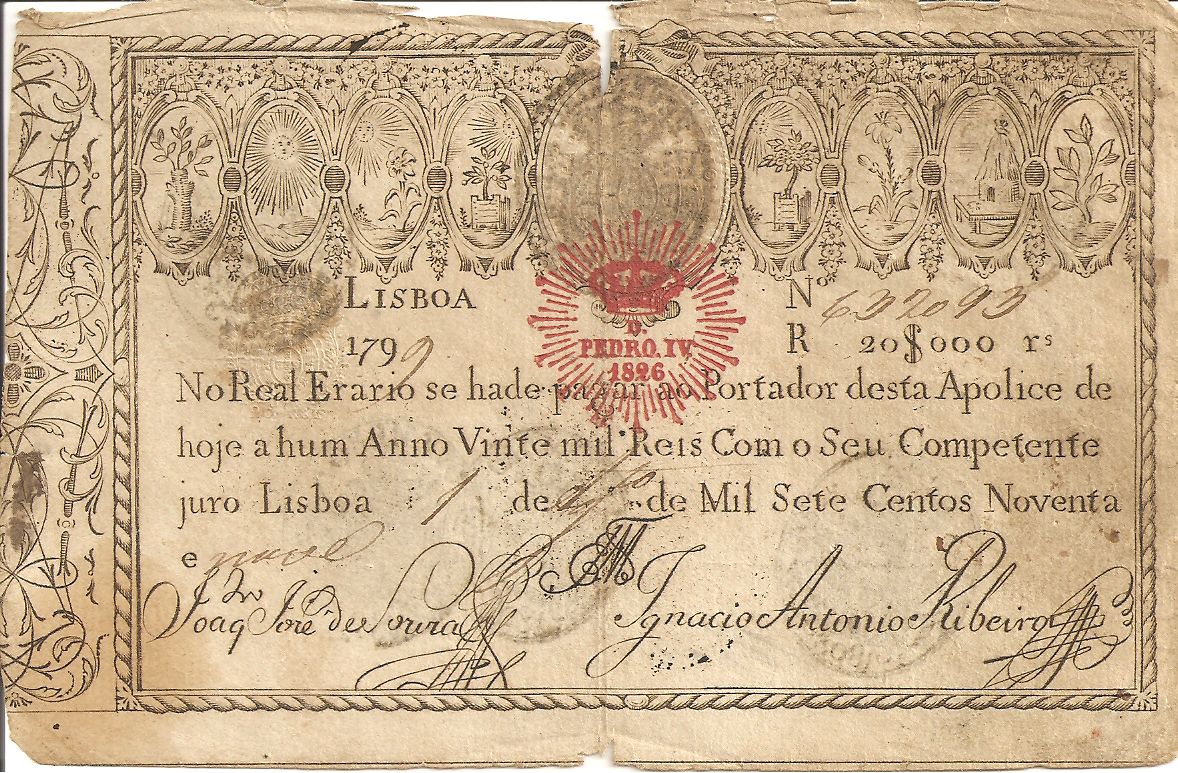 LISBOA
Nº 632093
1799
R 20$000 rˢ
D.
PEDRO.IV.
1826
No Real Erario se hade pagar ao Portador desta Apolice de
hoje a hum Anno Vinte mil Reis Com o Seu Competente
juro Lisboa 1 de de Mil Sete Centos Noventa
e nove
Joaqᵐ Joze de Souza
Ignacio Antonio Ribeiro